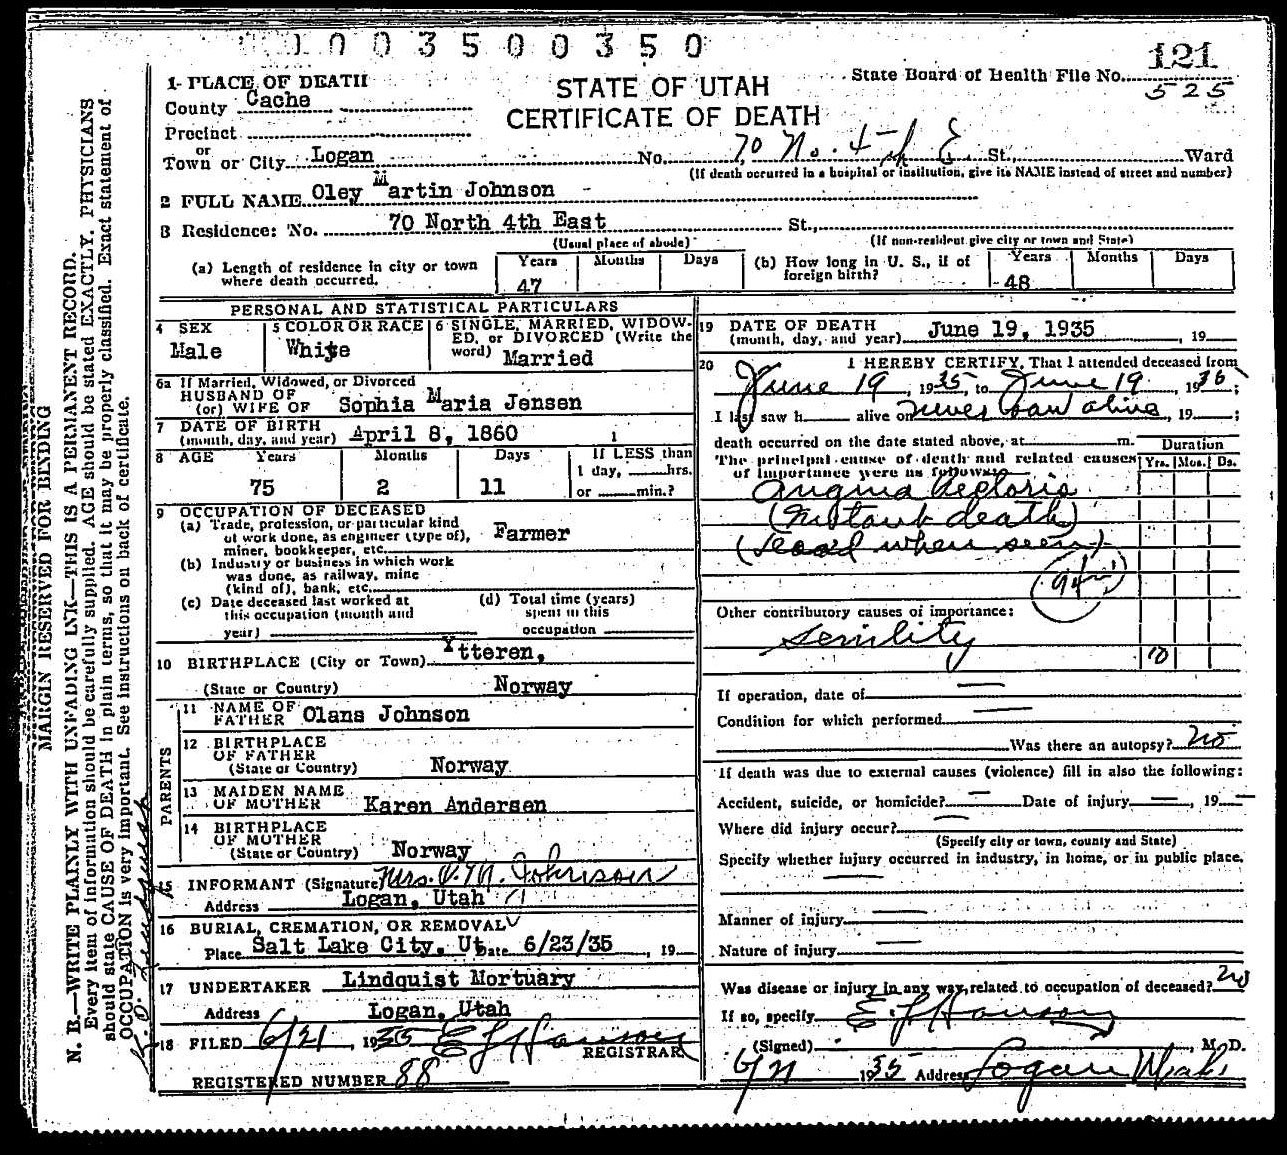 1003500350
121
State Board of Health File No.
525
STATE OF UTAH
CERTIFICATE OF DEATH
1- PLACE OF DEATH
County Cache
Precinct
or
Town or City Logan No. 70 No. 4th E. St., Ward
(If death occurred in a hospital or institution, give its NAME instead of street and number)
2 FULL NAME Oley Martin Johnson
3 Residence: No. 70 North 4th East St.,
(Usual place of abode) (If non-resident give city or town and State)
(a) Length of residence in city or town where death occurred. Years 47 Months Days
(b) How long in U. S., if of foreign birth? Years 48 Months Days
PERSONAL AND STATISTICAL PARTICULARS
4 SEX Male
5 COLOR OR RACE White
6 SINGLE, MARRIED, WIDOWED, or DIVORCED (Write the word) Married
6a If Married, Widowed, or Divorced
HUSBAND OF
(or) WIFE OF Sophia Maria Jensen
7 DATE OF BIRTH
(month, day, and year) April 8, 1860
8 AGE Years 75 Months 2 Days 11
If LESS than
1 day, hrs.
or min.?
9 OCCUPATION OF DECEASED
(a) Trade, profession, or particular kind
of work done, as engineer (type of),
miner, bookkeeper, etc. Farmer
(b) Industry or business in which work
was done, as railway, mine
(kind of), bank, etc.
(c) Date deceased last worked at
this occupation (month and
year)
(d) Total time (years)
spent in this
occupation
10 BIRTHPLACE (City or Town) Ytteren,
(State or Country) Norway
PARENTS
11 NAME OF
FATHER Olans Johnson
12 BIRTHPLACE
OF FATHER
(State or Country) Norway
13 MAIDEN NAME
OF MOTHER Karen Andersen
14 BIRTHPLACE
OF MOTHER
(State or Country) Norway
15 INFORMANT (Signature) Mrs. O. M. Johnson
Address Logan, Utah
16 BURIAL, CREMATION, OR REMOVAL
Place Salt Lake City, Ut. Date 6/23/35, 19
17 UNDERTAKER Lindquist Mortuary
Address Logan, Utah
18 FILED 6/21, 1935 E L Hanson
REGISTRAR
REGISTERED NUMBER 88
19 DATE OF DEATH
(month, day, and year) June 19, 1935, 19
20 I HEREBY CERTIFY, That I attended deceased from
June 19, 1935, to June 19, 1935;
I last saw h alive on never saw alive, 19 ;
death occurred on the date stated above, at m.
The principal cause of death and related causes
of importance were as follows:
Duration
Yrs. Mos. Ds.
Angina Pectoris
(Instant death)
(Dead when seen)
Other contributory causes of importance:
Senility 10
If operation, date of —
Condition for which performed —
Was there an autopsy? no
If death was due to external causes (violence) fill in also the following:
Accident, suicide, or homicide? — Date of injury —, 19 —
Where did injury occur? —
(Specify city or town, county and State)
Specify whether injury occurred in industry, in home, or in public place.
—
Manner of injury —
Nature of injury —
Was disease or injury in any way related to occupation of deceased? no
If so, specify
(Signed) E. L. Hanson, M. D.
6/21 1935 Address Logan Utah
MARGIN RESERVED FOR BINDING
N. B.—WRITE PLAINLY WITH UNFADING INK—THIS IS A PERMANENT RECORD.
Every item of information should be carefully supplied. AGE should be stated EXACTLY. PHYSICIANS
should state CAUSE OF DEATH in plain terms, so that it may be properly classified. Exact statement of
OCCUPATION is very important. See instructions on back of certificate.